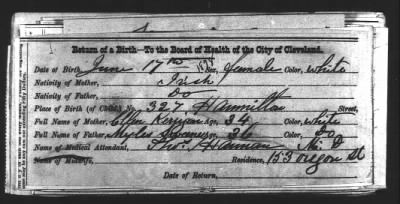 Return of a Birth—To the Board of Health of the City of Cleveland.
Date of Birth, June 17th 1874 Sex, female Color, White
Nativity of Mother, Irish
Nativity of Father, Do
Place of Birth (of Child) No. 327 Hammilton Street,
Full Name of Mother, Ellen Age, 34 Color, White
Full Name of Father, Myles Sweeney Age, 36 Color, Do
Name of Medical Attendant, Thos. Hannan M. D
Name of Midwife, Residence, 153 Oregon St
Date of Return,